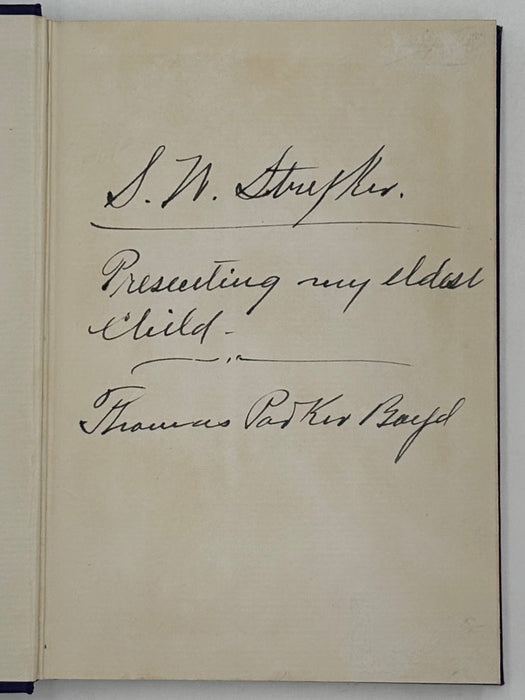 S. W. Stryker.
Presenting my eldest
Child -
Thomas Parker Boyd